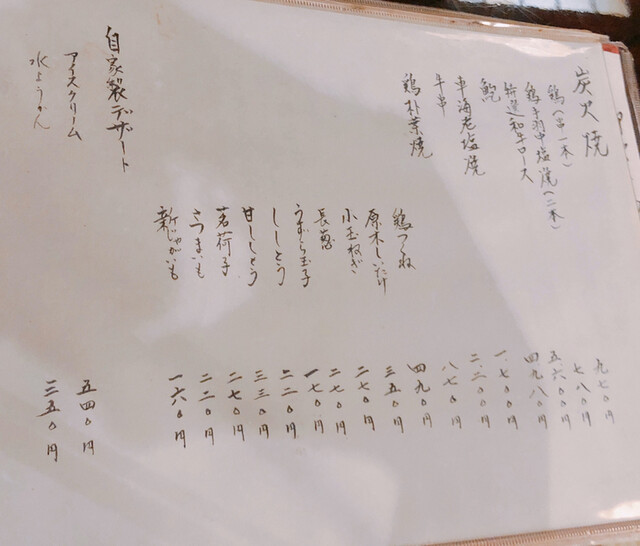 炭火焼
鶏(串一本) 九七〇円
鶏手羽中塩焼(二本) 七八〇円
特選和牛ロース 五六〇〇円
鮑 四九八〇円
車海老塩焼 一、七〇〇円
牛串 二、二〇〇円
鶏朴葉焼 八七〇円
鶏つくね 四九〇円
原木しいたけ 三五〇円
小玉ねぎ 二七〇円
長葱 二七〇円
うずら玉子 一七〇円
ししとう 二二〇円
甘ししとう 三三〇円
茗荷子 二七〇円
さつまいも 二二〇円
新じゃがいも 一六〇円
自家製デザート
アイスクリーム 五四〇円
水ようかん 三五〇円